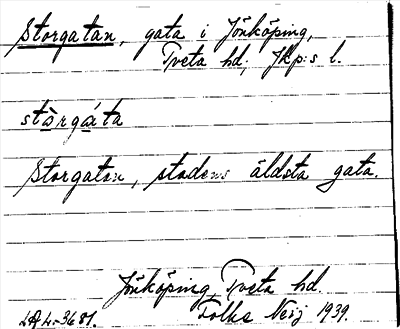 Storgatan, gata i Jönköping,
Tveta hd; Jkp:s l.
stårgáta
Storgatan, stadens äldsta gata.
Jönköping, Tveta hd.
Folke Neij 1939.